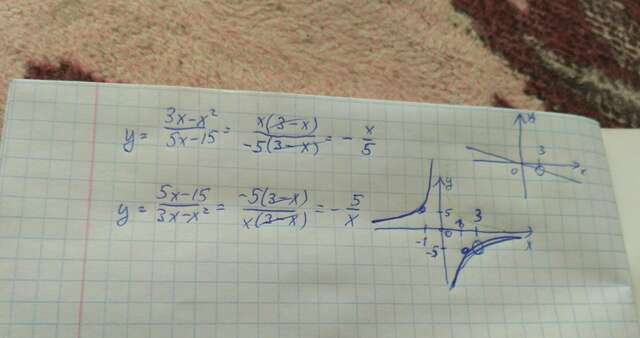 y = (3x-x²)/(5x-15) = x(3-x)/(-5(3-x)) = - x/5
y
3
0
x
y = (5x-15)/(3x-x²) = -5(3-x)/(x(3-x)) = - 5/x
y
5
0
1
3
x
-1
-5